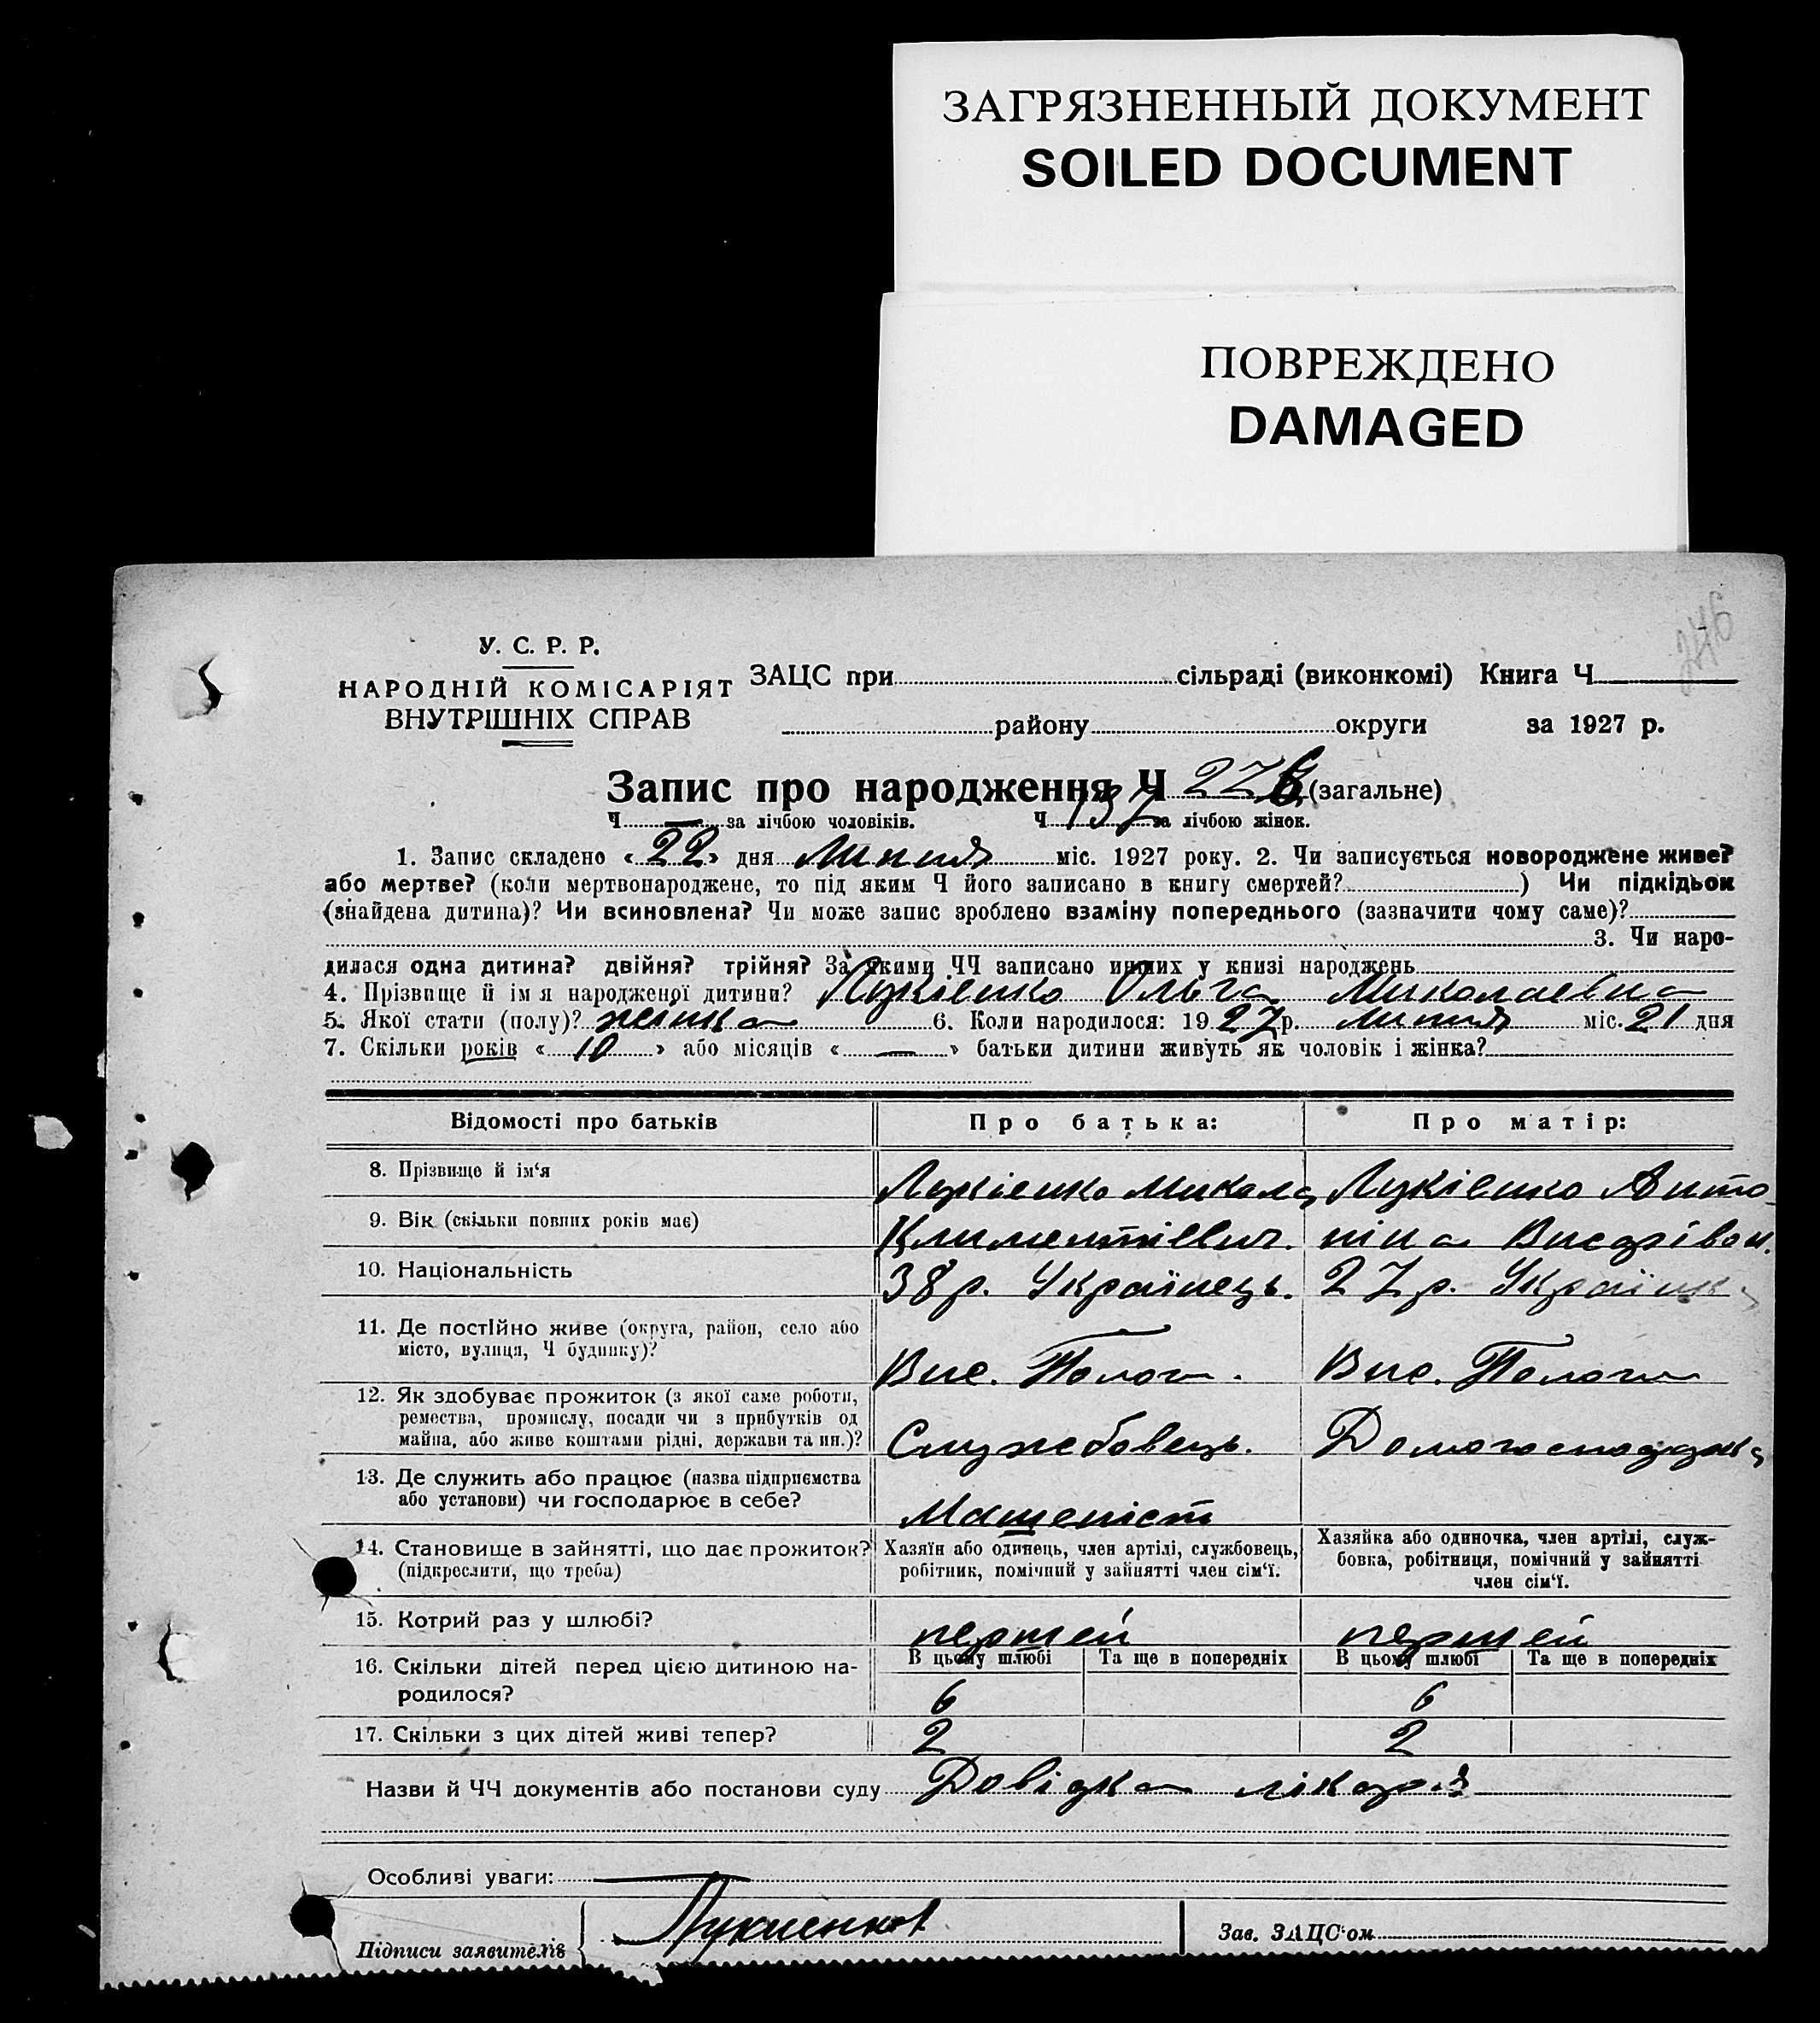 ЗАГРЯЗНЕННЫЙ ДОКУМЕНТ
SOILED DOCUMENT
ПОВРЕЖДЕНО
DAMAGED
246
У. С. Р. Р.
НАРОДНІЙ КОМІСАРІЯТ
ВНУТРІШНІХ СПРАВ
ЗАЦС при сільраді (виконкомі) Книга Ч
району округи за 1927 р.
Запис про народження Ч 276 (загальне)
Ч — за лічбою чоловіків. Ч 137 за лічбою жінок.
1. Запис складено «22» дня Липня міс. 1927 року. 2. Чи записується новороджене живе?
або мертве? (коли мертвонароджене, то під яким Ч його записано в книгу смертей? ) Чи підкідьок
(знайдена дитина)? Чи всиновлена? Чи може запис зроблено взаміну попереднього (зазначити чому саме)?
3. Чи наро-
дилася одна дитина? двійня? трійня? За якими ЧЧ записано инших у книзі народжень
4. Прізвище й імя народженої дитини? Лукіенко Ольга Миколаевна
5. Якої стати (полу)? жінка 6. Коли народилося: 1927 р. Липня міс. 21 дня
7. Скільки років «10» або місяців «—» батьки дитини живуть як чоловік і жінка?
Відомості про батьків Про батька: Про матір:
8. Прізвище й ім'я Лукіенко Микола Лукіенко Анто
9. Вік (скільки повних років має) Климентіевич. ніна
10. Національність 38 р. Українець. 27 р. Українка
11. Де постійно живе (округа, район, село або
місто, вулиця, Ч будинку)? Вис. Пологи. Вис. Пологи
12. Як здобуває прожиток (з якої саме роботи,
ремества, промислу, посади чи з прибутків од
майна, або живе коштами рідні, держави та ин.)? Службовець. Домогосподарка
13. Де служить або працює (назва підприємства
або установи) чи господарює в себе? Машеніст
14. Становище в зайнятті, що дає прожиток?
(підкреслити, що треба)
Хазяїн або одинець, член артілі, службовець,
робітник, помічний у зайнятті член сім'ї.
Хазяйка або одиночка, член артілі, служ-
бовка, робітниця, помічний у зайнятті
член сім'ї.
15. Котрий раз у шлюбі? першей першей
16. Скільки дітей перед цією дитиною на-
родилося?
В цьому шлюбі Та ще в попередніх В цьому шлюбі Та ще в попередніх
6 6
17. Скільки з цих дітей живі тепер? 2 2
Назви й ЧЧ документів або постанови суду Довідка лікаря
Особливі уваги: —
Підписи заявителів Лукиенко Зав. ЗАЦС'ом